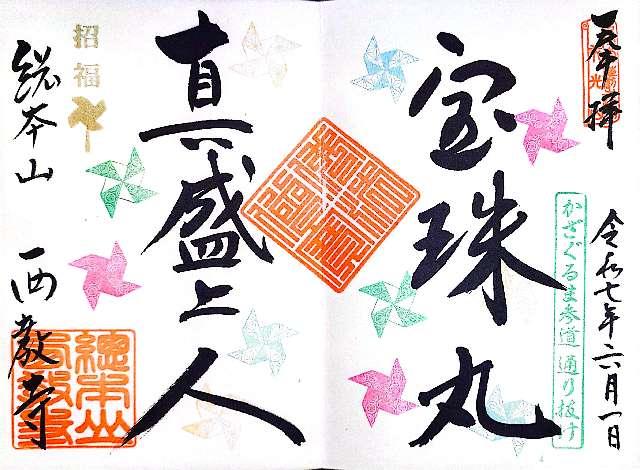 奉拝
令和七年六月一日
かざぐるま参道 通り抜け
宝珠丸
真盛上人
招福
総本山 西教寺